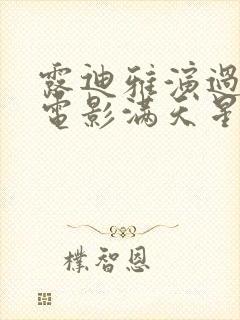 露迪雅演過
電影滿天星
樸智恩